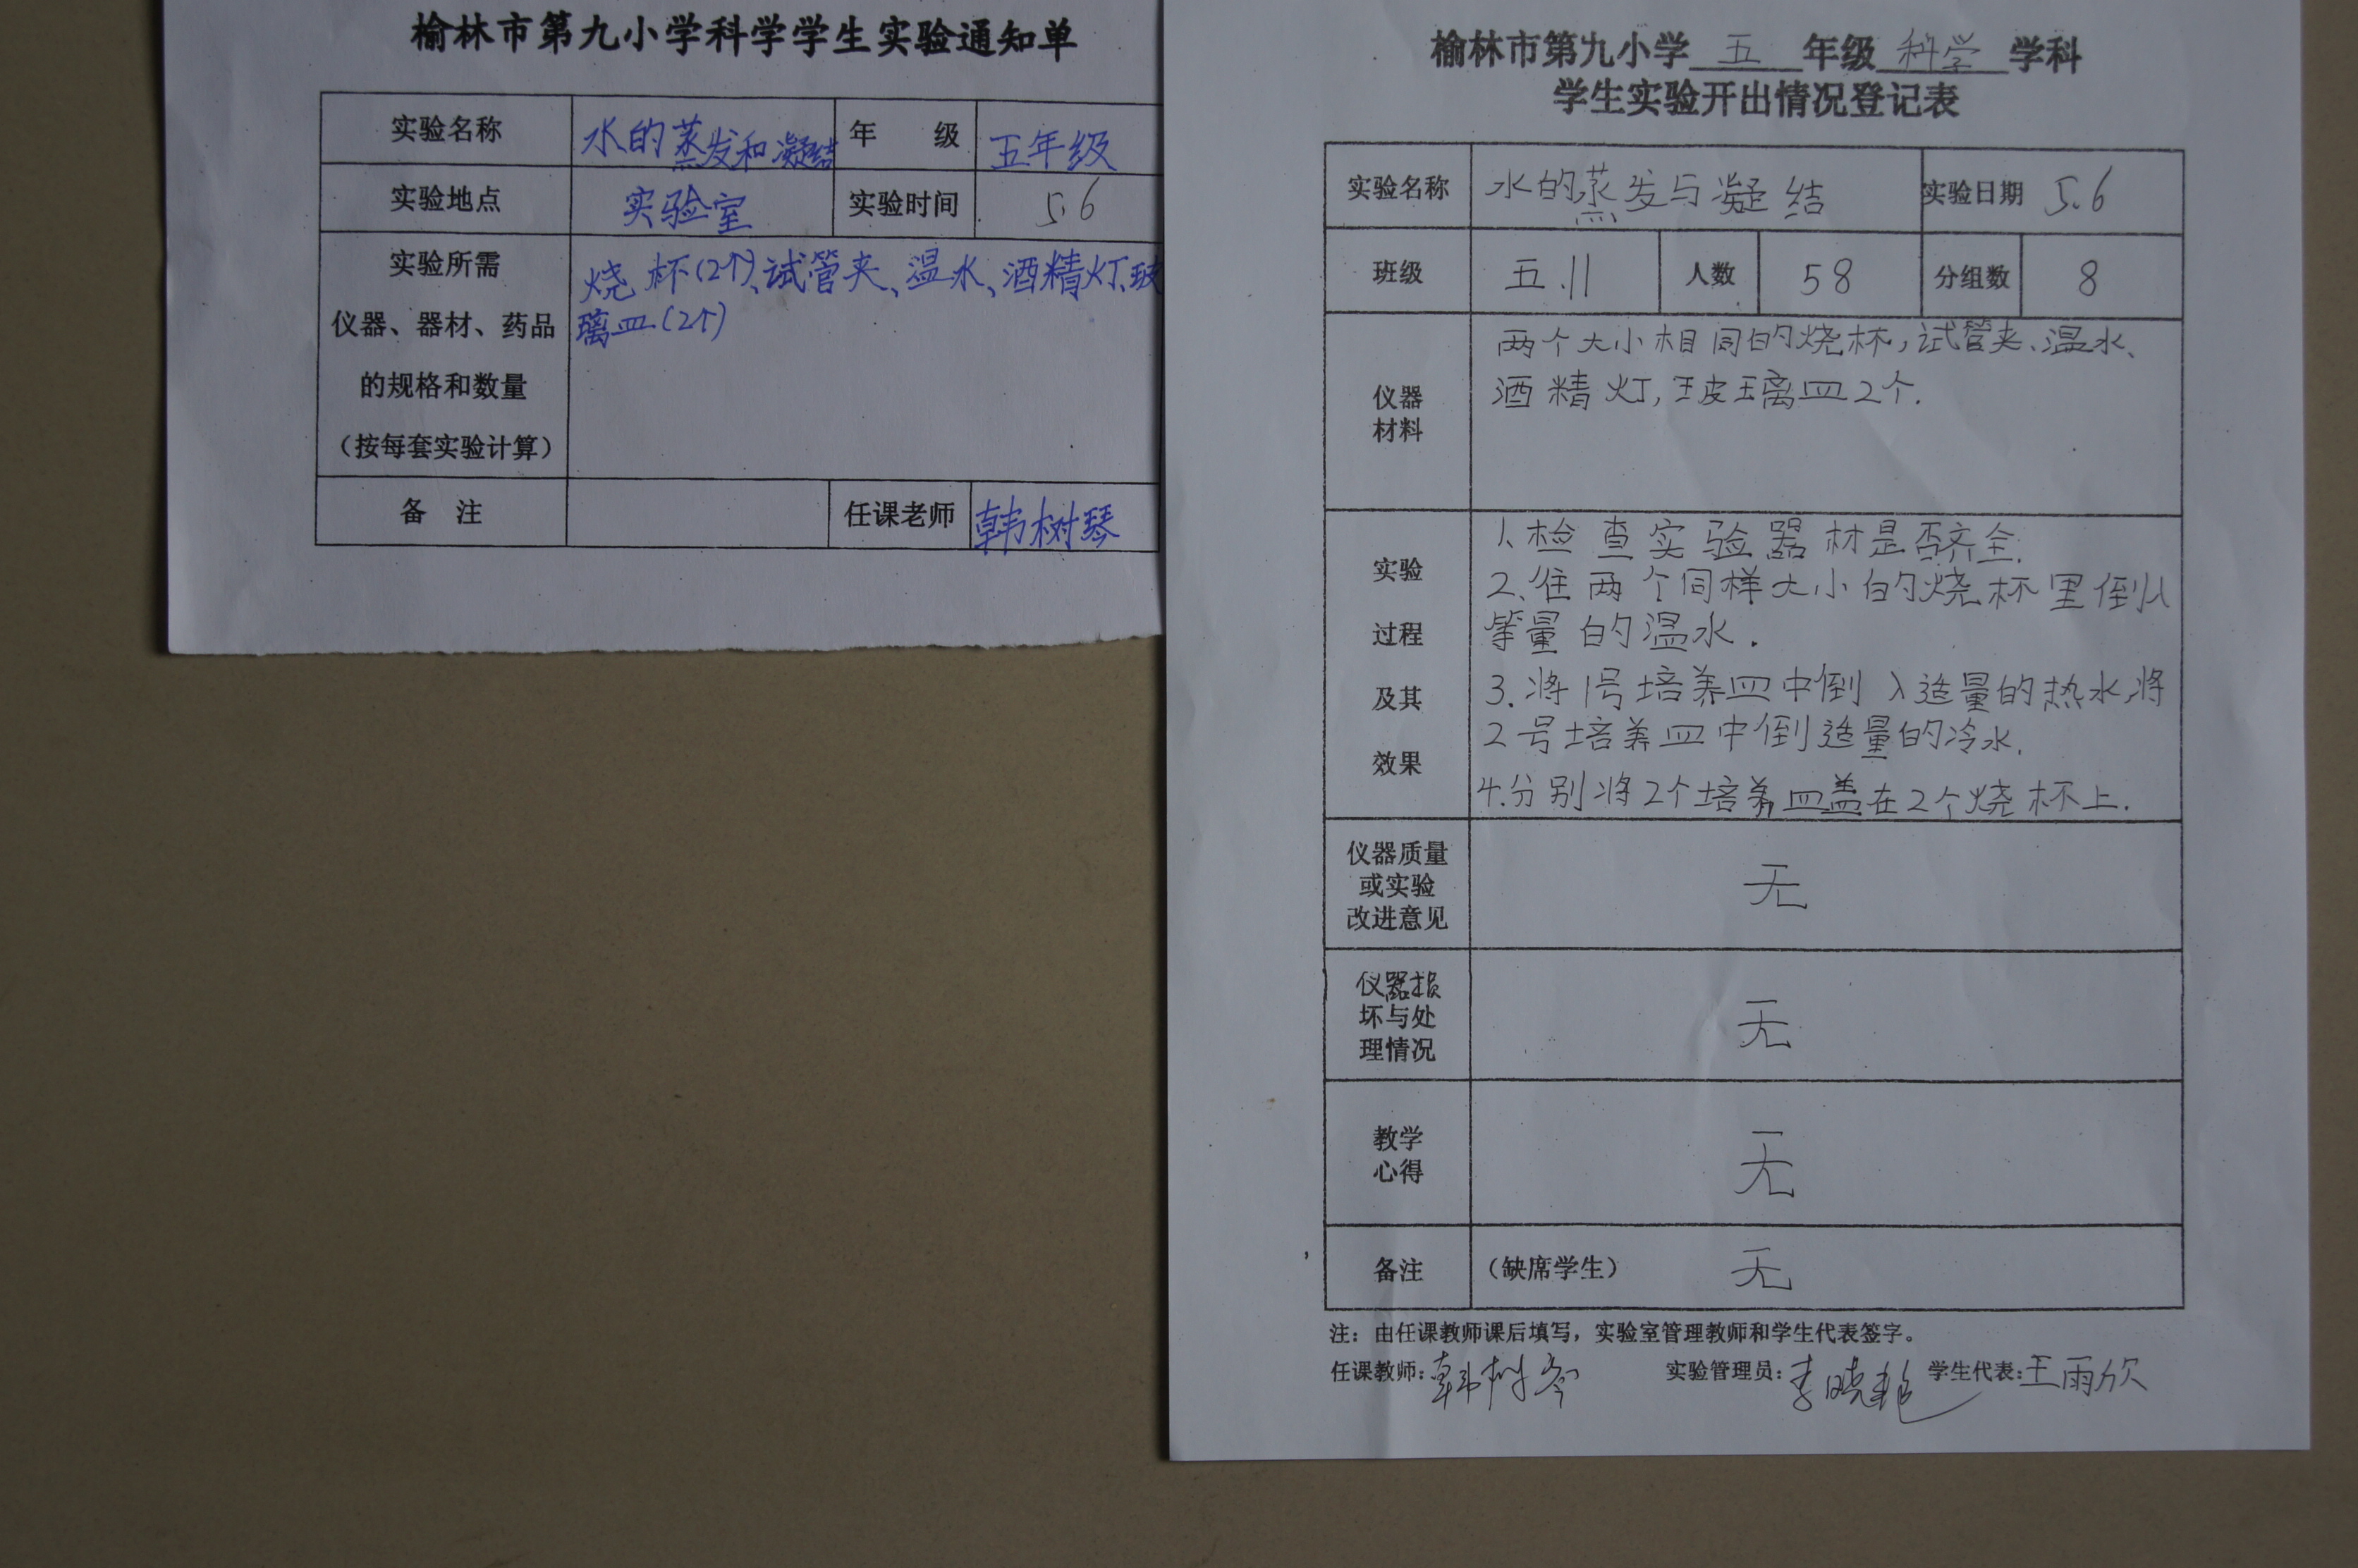 榆林市第九小学科学学生实验通知单
实验名称 水的蒸发和凝结 年 级 五年级
实验地点 实验室 实验时间 5.6
实验所需
仪器、器材、药品
的规格和数量
（按每套实验计算）
烧杯(2个)、试管夹、温水、酒精灯、玻
璃皿(2个)
备 注 任课老师 韩树琴
榆林市第九小学 五 年级 科学 学科
学生实验开出情况登记表
实验名称 水的蒸发与凝结 实验日期 5.6
班级 五.11 人数 58 分组数 8
仪器
材料
两个大小相同的烧杯,试管夹、温水、
酒精灯,玻璃皿2个.
实验
过程
及其
效果
1、检查实验器材是否齐全.
2、往两个同样大小的烧杯里倒入
等量的温水.
3.将1号培养皿中倒入适量的热水,将
2号培养皿中倒适量的冷水.
4.分别将2个培养皿盖在2个烧杯上.
仪器质量
或实验
改进意见
无
仪器损
坏与处
理情况
无
教学
心得
无
备注 （缺席学生） 无
注：由任课教师课后填写，实验室管理教师和学生代表签字。
任课教师：韩树琴 实验管理员：李晓艳 学生代表：王雨欣